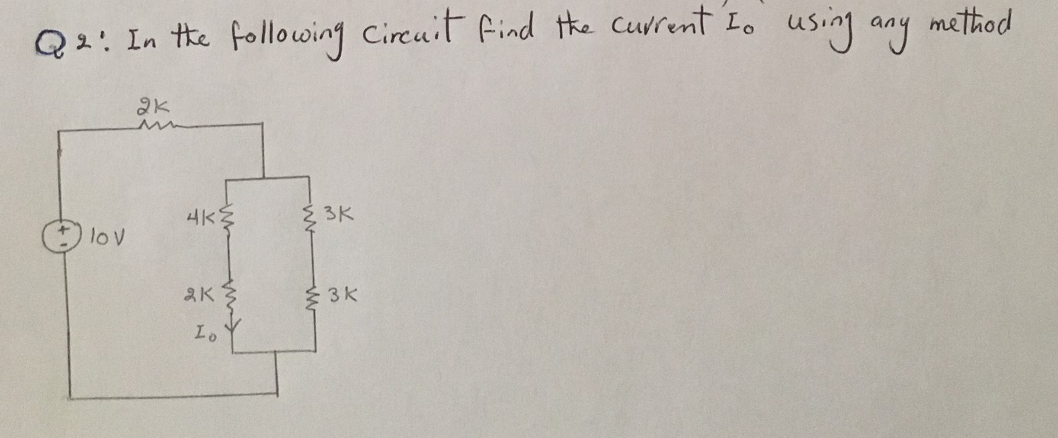 Q2: In the following circuit find the current Io using any method
2K
4K
3K
+
-
10V
2K
3K
Io